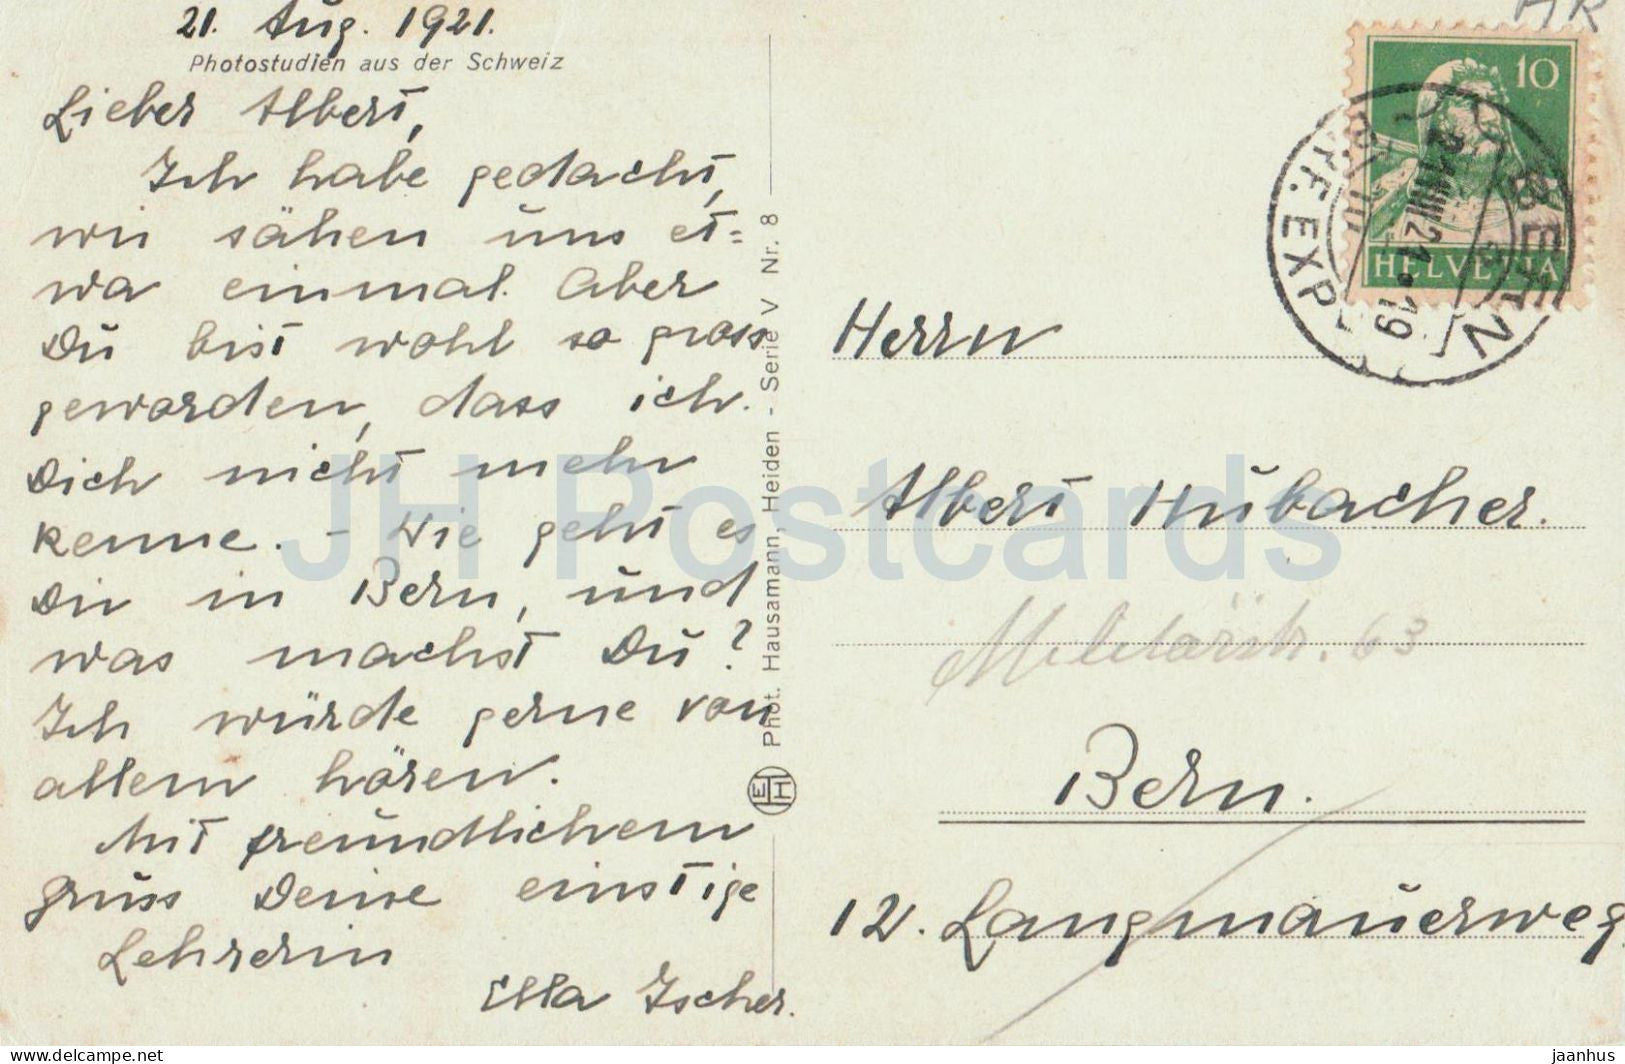 21. Aug. 1921.
Photostudien aus der Schweiz
Lieber Albert,
Ich habe gedacht,
wir sähen uns et=
wa einmal. Aber
Du bist wohl so gross
geworden, dass ich
Dich nicht mehr
kenne. - Wie geht es
Dir in Bern, und
was machst Du?
Ich würde gerne von
allem hören.
Mit freundlichem
Gruss Deine einstige
Lehrerin
Ella Ischer.
Phot. Hausamann, Heiden - Serie V Nr. 8
EH
HR
10
HELVETIA
BERN
BRF. EXP.
21.VIII.21.19
Herrn
Albert Hubacher.
Militärstr. 63
Bern.
12. Langmauerweg
JH Postcards
www.delcampe.net
jaanhus